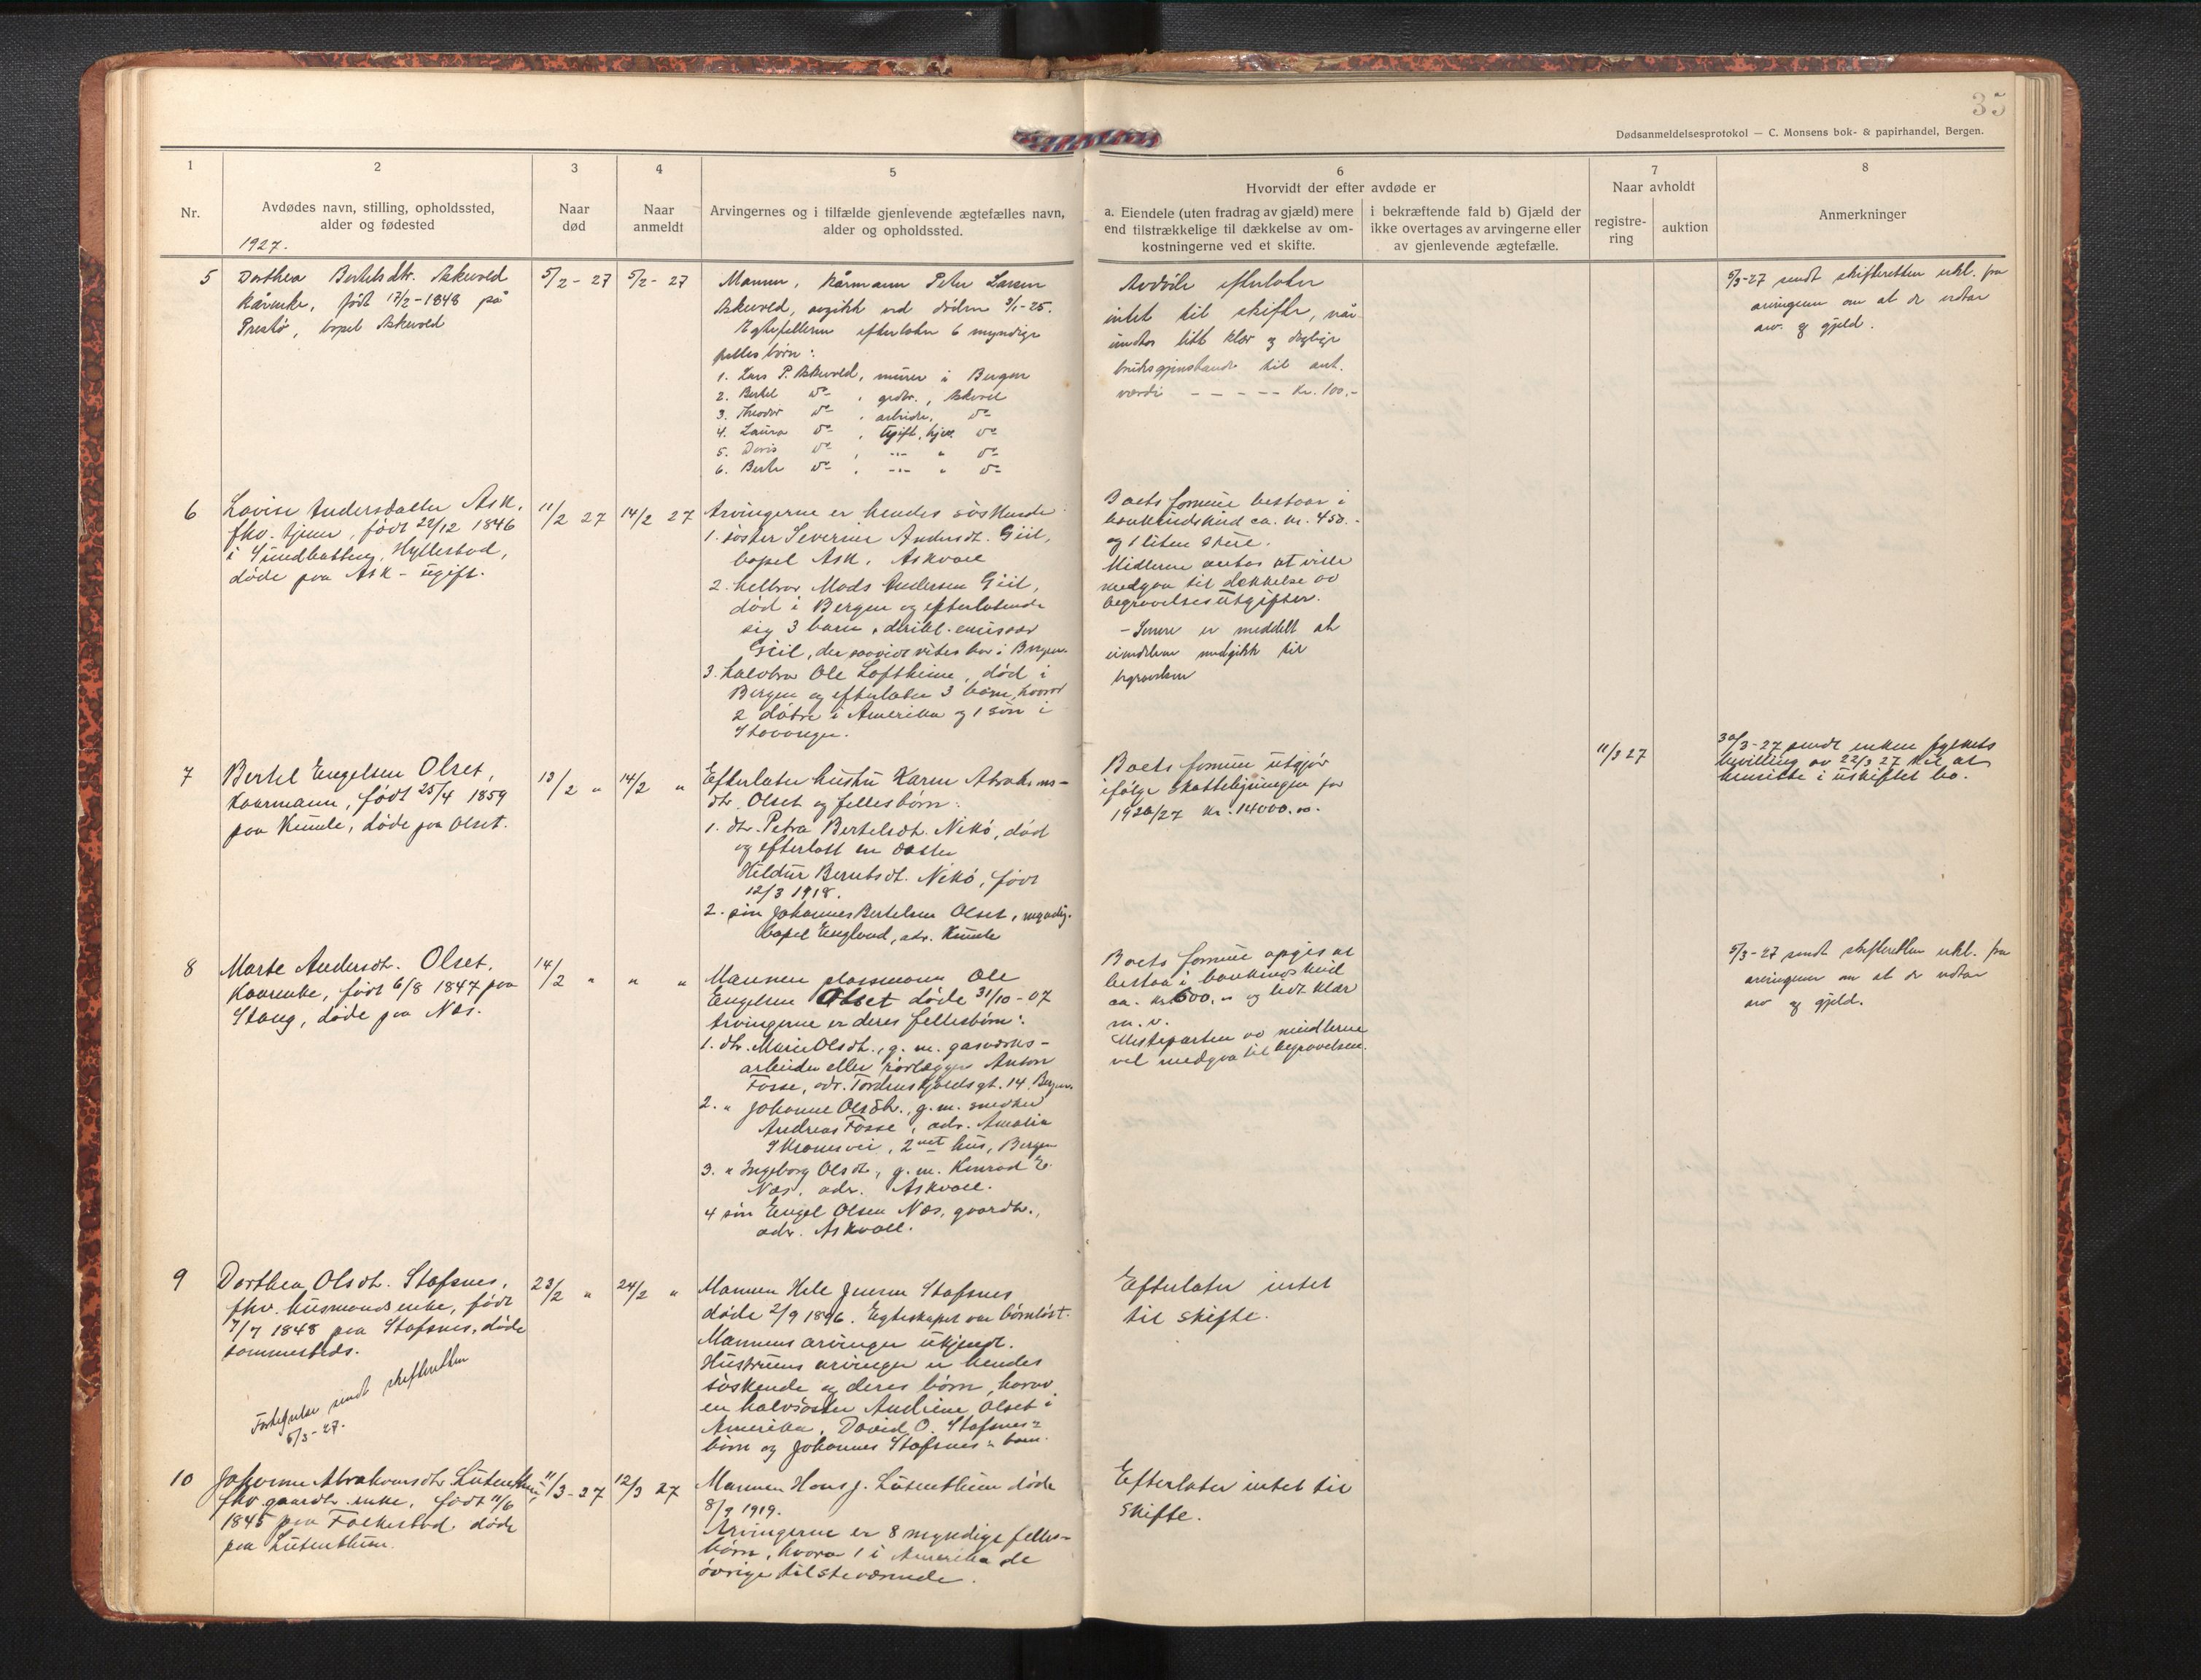 35
Dødsanmeldelsesprotokol — C. Monsens bok- & papirhandel, Bergen.
1
2
3
4
5
6
7
8
Nr.
Avdødes navn, stilling, opholdssted,
alder og fødested
Naar
død
Naar
anmeldt
Arvingernes og i tilfælde gjenlevende ægtefælles navn,
alder og opholdssted.
Hvorvidt der efter avdøde er
a. Eiendele (uten fradrag av gjæld) mere
end tilstrækkelige til dækkelse av om-
kostningerne ved et skifte.
i bekræftende fald b) Gjæld der
ikke overtages av arvingerne eller
av gjenlevende ægtefælle.
Naar avholdt
registre-
ring
auktion
Anmerkninger
1927.
5
Dorthea Bertelsdtr. Askvold
kårenke, født 17/2-1848 på
Prestø, bopel Askvold
5/2-27
5/2-27
Mannen, kårmann Peter Larsen
Askvold, avgikk ved døden 3/1-25.
Egtefellerne efterlater 6 myndige
felles börn:
1. Lars P. Askvold, murer i Bergen
2. Bertel do , grdbr., Askvoll
3. Theodor do , arbeider, do
4. Laura do , ugift, hjem. do
5. Doris do , -"- " do
6. Berte do , -"- " do
Avdöde efterlater
intet til skifte, når
undtas litt klær og daglige
bruksgjenstande til ant.
verdi - - - - - Kr. 100,-
5/3-27 sendt skifteretten erkl. fra
arvingerne om at de vedtar
arv og gjeld.
6
Lovise Andersdatter Ask,
fhv. tjener, født 22/12 1846
i Hyllestad,
døde paa Ask - ugift.
11/2 27
14/2 27
Arvingerne er hendes söskende:
1. söster Severine Andersdt. Giil,
bopel Ask, Askvoll
2. helbror Mads Andersen Giil,
död i Bergen og efterlatende
sig 3 barn,
Giil, der saavidt vites bor i Bergen.
3. halvbror Ole Loftheim, död i
Bergen og efterlater 3 börn, hvorav
2 dötre i Amerika og 1 sön i
Stavanger.
Boets formue bestaar i
bankindskud ca. kr. 450.-
og 1 liten stue.
Midlerne antas at ville
medgaa til dekkelse av
begravelsesutgifter.
- Senere er meddelt at
eiendelene medgikk til
begravelsen
7
Bertel Engelsen Olset,
Kaarmann, født 25/4 1859
paa Kumle, døde paa Olset.
13/2 "
14/2 "
Efterlater hustru Karen Abrahams-
dtr. Olset og felles börn:
1. dtr. Petra Bertelsdt. Nekö, död
og efterlatt en datter
Hildur Berntsdt. Nekö, født
12/3 1918.
2. sön Johannes Bertelsen Olset, myndig.
bopel England, adr. Kumle
Boets formue utgjör
ifölge skatteligningen for
1926/27 kr. 14000.00.
11/3 27
30/3-27 sendt enken fylkets
bevilling av 22/3 27 til at
hensitte i uskiftet bo.
8
Marte Andersdt. Olset,
Kaarenke, født 6/8 1847 paa
Stang, døde paa Næs.
14/2 "
" "
Mannen plassmann Ole
Engelsen Olset døde 31/10-07
Arvingerne er deres fellesbörn:
1. dtr. Marie Olsdt., g. m. gasverks-
arbeider eller rörlægger Anton
Fosse, adr. Tordenskjoldsgt. 14 Bergen.
2. " Johanne Olsdt., g. m. snedker
Andreas Fosse, adr. Amalie
Skramsvei, 2net hus, Bergen
3. " Ingeborg Olsdt., g. m. Konrad E.
Næs, adr. Askvoll.
4 sön Engel Olsen Næs, gaardbr.,
adr. Askvoll.
Boets formue opgis at
bestaa i bankindskud
ca. kr. 600.00 og lidt klær
m. v.
Mesteparten av midlerne
vil medgaa til begravelsen.
5/3-27 sendt skifteretten erkl. fra
arvingerne om at de vedtar
arv og gjeld.
9
Dorthea Olsdt. Stafsnes,
fhv. husmandsenke, født
7/7 1848 paa Stafsnes, døde
sammesteds.
Fortegnelse sendt skifteretten
5/3-27.
23/2 "
24/2 "
Mannen Hele Jensen Stafsnes
døde 2/9 1896. Egteskapet var börnlöst.
Mannens arvinger ukjendt.
Hustruens arvinger er hendes
söskende og deres börn, hvorav
en halvsöster Andrine Olset i
Amerika, David O. Stafsnes's
börn og Johannes Stafsnes's barn.
Efterlater intet
til skifte.
10
Johanne Abrahamsdtr. Lutentheim
fhv. gaardbr. enke, født 11/6
1845 paa Folkestad døde
paa Lutentheim.
11/3-27
12/3 27
Mannen Hans J. Lutentheim døde
8/9 1919.
Arvingerne er 8 myndige felles-
börn, hvorav 1 i Amerika de
övrige tilstedeværende.
Efterlater intet til
skifte.